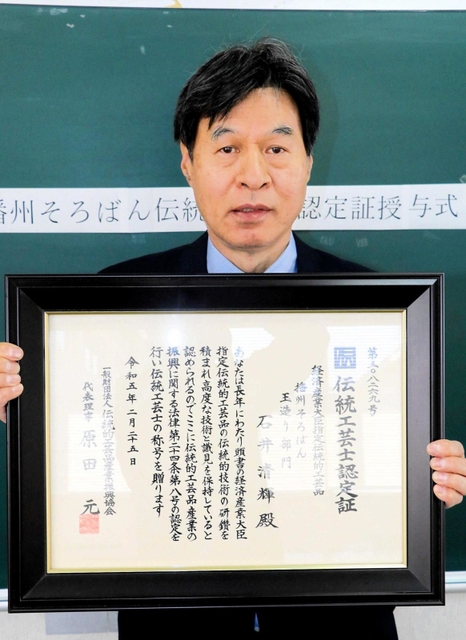 播州そろばん伝統 認定証授与式
伝統工芸士認定証
経済産業大臣指定伝統的工芸品
播州そろばん
玉造り部門
石井清輝殿
あなたは長年にわたり頭書の経済産業大臣
指定伝統的工芸品の伝統的技術の研鑽を
積まれ高度な技術と識見を保持していると
認められるのでここに伝統的工芸品産業の
振興に関する法律第二十四条第八号の認定を
行い伝統工芸士の称号を贈ります
令和五年二月二十五日
一般財団法人伝統的工芸品産業振興協会
代表理事 原田 元